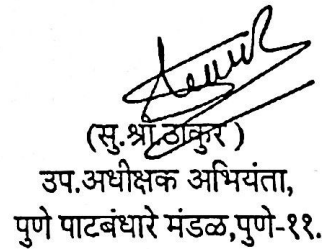 (सु.श्रा.ठाकुर )
उप.अधीक्षक अभियंता,
पुणे पाटबंधारे मंडळ,पुणे-११.